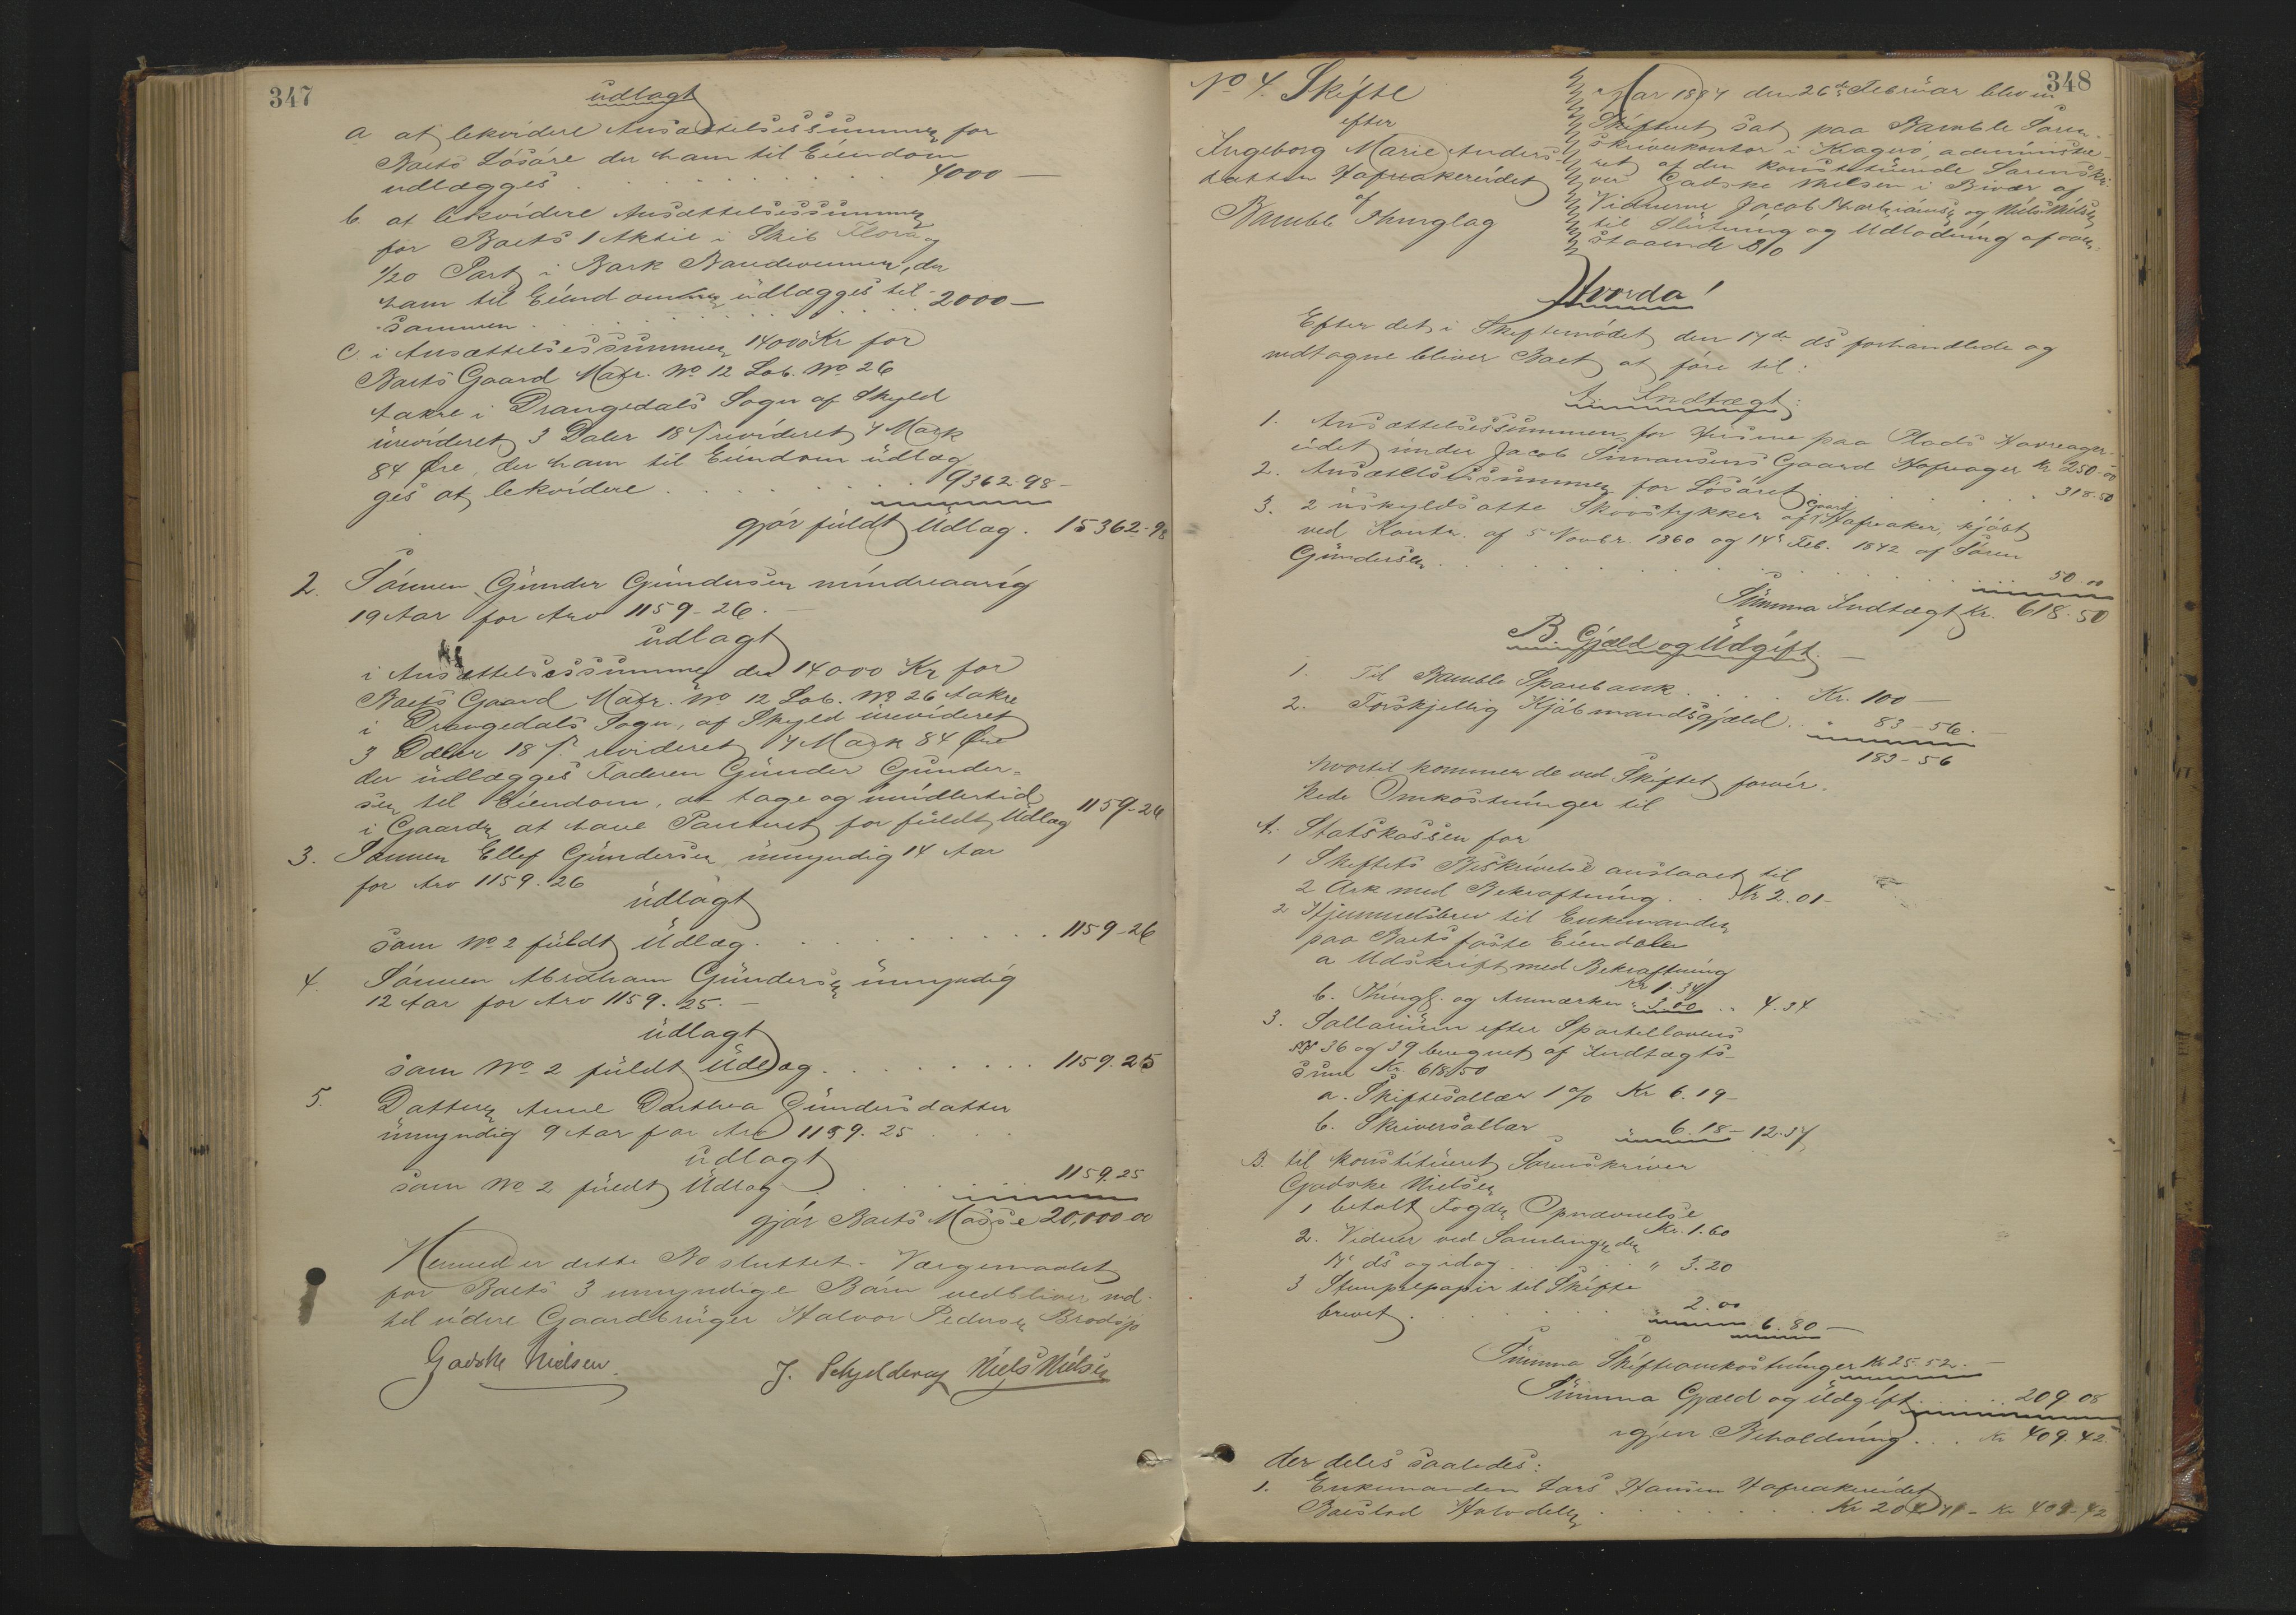 347
udlagt
a at lekvidere Ansættelsessummen for
Boets Lösöre der ham til Eiendom
udlægges . . . 4000 —
b. at lekvidere Ansættelsessummen
for Boets 1 Aktie i Skib Flora og
1/20 Part i Bark Bandevennen, der
ham til Eiendommen udlægges til-
sammen . . . 2000 —
c. i Ansættelsessummen 14000 Kr for
Boets Gaard Matr. No 12 Löb. No 26
Aakre i Drangedals Sogn af Skyld
urevideret 3 Daler 18 f revideret 4 Mark
84 Öre, der ham til Eiendom udlæg
ges at lekvidere . . . 9362-98-
gjör fuldt Udlag. 15362-98
2. Sönnen Gunder Gundersen mindreaarig
19 Aar for Arv 1159-26.-
udlagt
i Ansættelsessummen den 14000 Kr for
Boets Gaard Matr. No 12 Löb. No 26 Aakre
i Drangedals Sogn, af Skyld urevideret
3 Daler 18 f. revideret 4 Mark 84 Öre
der udlægges Faderen Gunder Gunder-
sen til Eiendom, at tage og imidlertid
i Gaarden at have Panteret for fuldt Udlæg 1159-26
3. Sönnen Ellef Gundersen umyndig 14 Aar
for Arv 1159.26
udlagt
som No 2 fuldt Udlæg . . . 1159-26
4. Sönnen Abraham Gundersen umyndig
12 Aar for Arv 1159.25.-
udlagt
som No 2 fuldt Udlæg . . . 1159.25
5. Datteren Anne Dorthea Gundersdatter
umyndig 9 Aar for Arv 1159.25
udlagt
som No 2 fuldt Udlæg . . . 1159.25
gjör Boets Masse 20,000 00
Hermed er dette Bo sluttet. Værgemaalet
for Boets 3 umyndige Börn vedbliver ind-
til videre Gaardbruger Halvor Pedersen Brödsjö
Gadske Nielsen. J. Schjelderup Niels Nielsen
348
No 4. Skifte
efter
Ingeborg Marie Anders-
datter Hafreakereidet
af
Bamble Thinglag
Aar 1884 den 26de Februar blev en
Skifteret sat paa Bamble Soren-
skriverkontor i Kragerö, administre-
ret af den konstituerede Sorenskri-
ver Gadske Nielsen i Bivær af
Vidnerne Jacob Mathiasen og Niels Nielsen
til Slutning og Udlodning af oven-
staaende Bo
Hvorda!
Efter det i Skiftemödet den 14de ds forhandlede og
vedtagne bliver Boet at före til:
A. Indtægt:
1. Ansættelsessummen for Husene paa Plads Havreager-
eidet under Jacob Simonsens Gaard Hafreager Kr 250.00
2. Ansættelsessummen for Lösöret . . . 318.50
3. 2 uskyldsatte Skovstykker af Gaard Hafreaker, kjöbt
ved Kontr. af 5 Novbr. 1860 og 14de Feb. 1842 af Sören
Gundersen . . . 50.00
Summa Indtægt Kr. 618.50
B. Gjæld og Udgift.-
1. Til Bamble Sparebank . . . Kr. 100 —
2. Forskjellig Kjöbmandsgjæld . . " 83-56.-
183-56
hvortil kommer de ved Skiftet forvir-
kede Omkostninger til
A. Statskassen for
1 Skiftets Beskrivelse anslaaet til
2 Ark med Bekræftning . . Kr 2.01-
2 Hjemmelsbrev til Enkemanden
paa Boets faste Eiendele
a Udskrift med Bekræftning
Kr 1.34
b. Thingl. og Anmærkn " 3.00 . . 4.34
3. Sallarium efter Sportellovens
§§ 36 og 39 beregnet af Indtægts-
sum Kr. 618.50
a. Skiftesallær 1 % Kr 6.19-
b. Skriversallær " 6.18- 12.37
B. til konstitueret Sorenskriver
Gadske Nielsen
1 betalt Fogden Opnævnelse
Kr. 1.60
2. Vidner ved Samlingen den
14 ds og idag . . . " 3.20
3 Stempelpapir til Skifte
brevet . . . 2.00
6.80 —
Summa Skifteomkostninger Kr 25-52.-
Summa Gjæld og Udgift . . . 209.08
igjen Beholdning . . . Kr 409.42
der deles saaledes:
1. Enkemanden Lars Hansen Hafreakereidet
Boeslod Halvdelen . . . Kr 204.71 - Kr 409-42